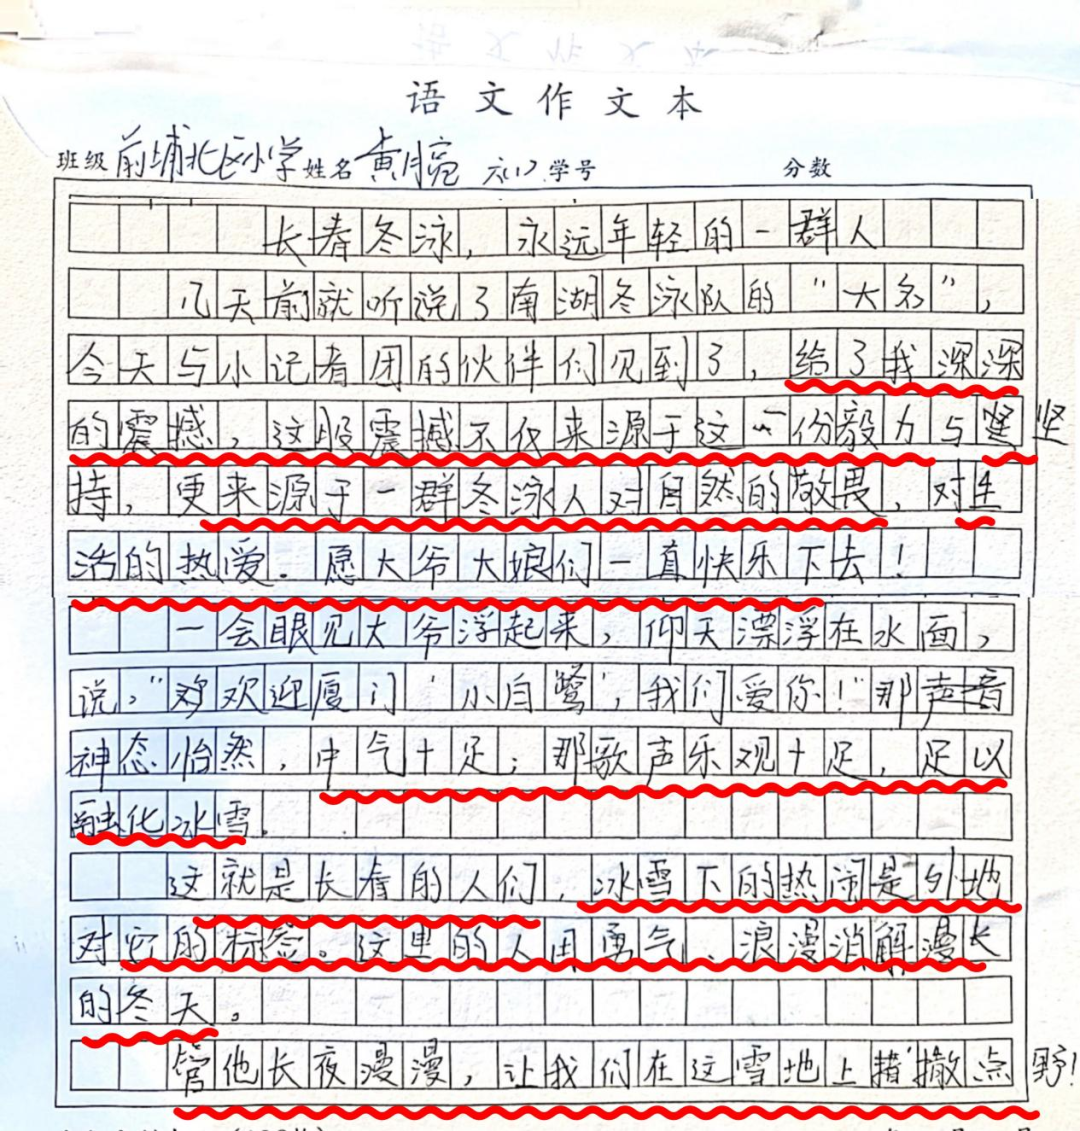 语文作文本
班级 前埔北区小学 姓名 黄月亮 六(1) 学号 分数
长春冬泳，永远年轻的一群人
几天前就听说了南湖冬泳队的“大名”，
今天与小记者团的伙伴们见到了，给了我深深
的震撼，这股震撼不仅来源于这一份毅力与坚
持，更来源于一群冬泳人对自然的敬畏，对生
活的热爱。愿大爷大娘们一直快乐下去！
一会眼见大爷浮起来，仰天漂浮在水面，
说，“欢迎厦门‘小白鹭’，我们爱你！”那声音
神态怡然，中气十足；那歌声乐观十足，足以
融化冰雪。
这就是长春的人们，冰雪下的热闹是外地
对它的标签。这里的人用勇气、浪漫消解漫长
的冬天。
管他长夜漫漫，让我们在这雪地上撒点野！